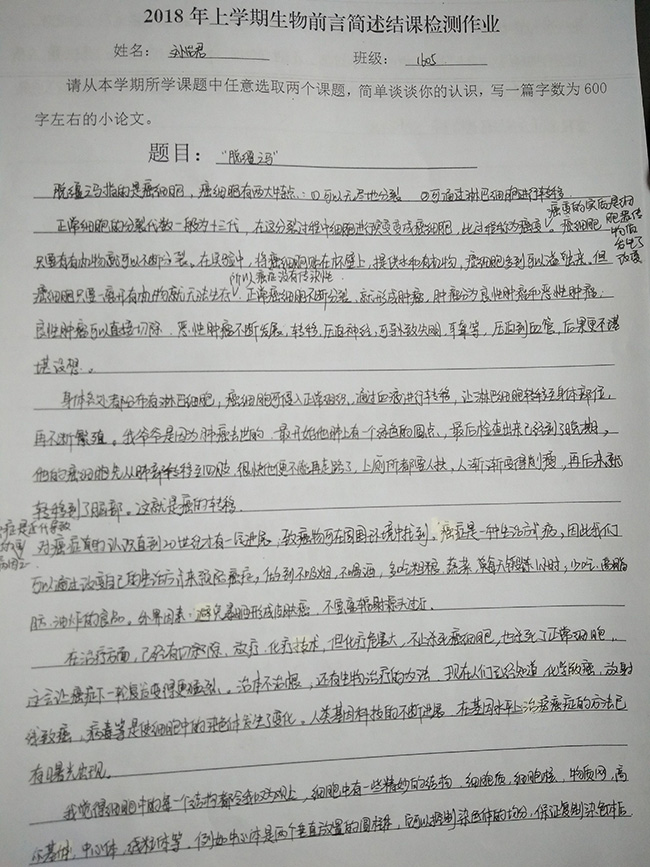 2018年上学期生物前言简述结课检测作业
姓名： 班级：1605
请从本学期所学课题中任意选取两个课题，简单谈谈你的认识，写一篇字数为600
字左右的小论文。
题目：“脱缰之马”
脱缰之马指的是癌细胞，癌细胞有两大特点：①可以无尽地分裂 ②可通过淋巴细胞进行转移
正常细胞的分裂代数一般为十三代，在这分裂过程中细胞进行突变变成癌细胞，此过程称为癌变，癌细胞
癌变的实质是细
胞遗传
物质
发生了
改变
只要有 就可以不断分裂。在实验中，将癌细胞贴在杯壁上，提供水和有 物，癌细胞
所以癌症没有传染性
癌细胞只要一离开 就无法生存，正常癌细胞不断分裂，就形成肿瘤，肿瘤分为良性肿瘤和恶性肿瘤
良性肿瘤可以直接切除，恶性肿瘤不断发展，转移，压迫神经，可导致失明，耳聋等，压迫到血管，后果更不堪
设想。
身体各处都分布有淋巴细胞，癌细胞可侵入正常组织，通过血液进行转移，让淋巴细胞转移至身体部位，
再不断繁殖。我爷爷是因为肿瘤去世的，最开始他肺上有一个 色的圆点，最后检查出来已经到了晚期，
他的癌细胞先从肺部转移至四肢，很快他便不能再走路了，上厕所都要人扶，人渐渐变得削瘦，再后来就
转移到了脑部。这就是癌的转移
对癌症真的认识直到20世纪才有一定进展，致癌物可在周围环境中找到。癌症是一种生活方式病，因此我们
可以通过改变自己的生活方式来预防癌症，做到不吸烟，不喝酒，多吃粗粮，蔬菜， 每天锻炼 小时，少吃高脂
肪，油炸的食品。外界因素：避免暴晒形成皮肤癌，不要靠辐射源头过近。
在治疗方面，已经有切除，放疗，化疗技术，但化疗危害大，不止杀死癌细胞，也杀死了正常细胞，
这会让癌症下一轮复发变得更猛烈。治标不治根，还有生物治疗的方法，现在人们已经知道，化学致癌，放射
线致癌，病毒等是使细胞中的染色体发生了变化。人类基因科技的不断进展，在基因水平上治疗癌症的方法已
有曙光出现。
我觉得细胞中的每一个结构都 ，细胞中有一些精妙的结构，细胞质，细胞核，内质网，高
尔基体，中心体，线粒体等，例如中心体是两个垂直放置的圆柱体，它可以控制染色体的均分，保证复制染色体后